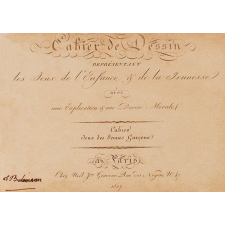 Cahier de Dessin
REPRÉSENTANT
les Jeux de l'Enfance & de la Jeunesse
avec
une Explication & une Devise Morale
Cahier
Jeux des Jeunes Garçons
à Paris
Chez Noël
1807